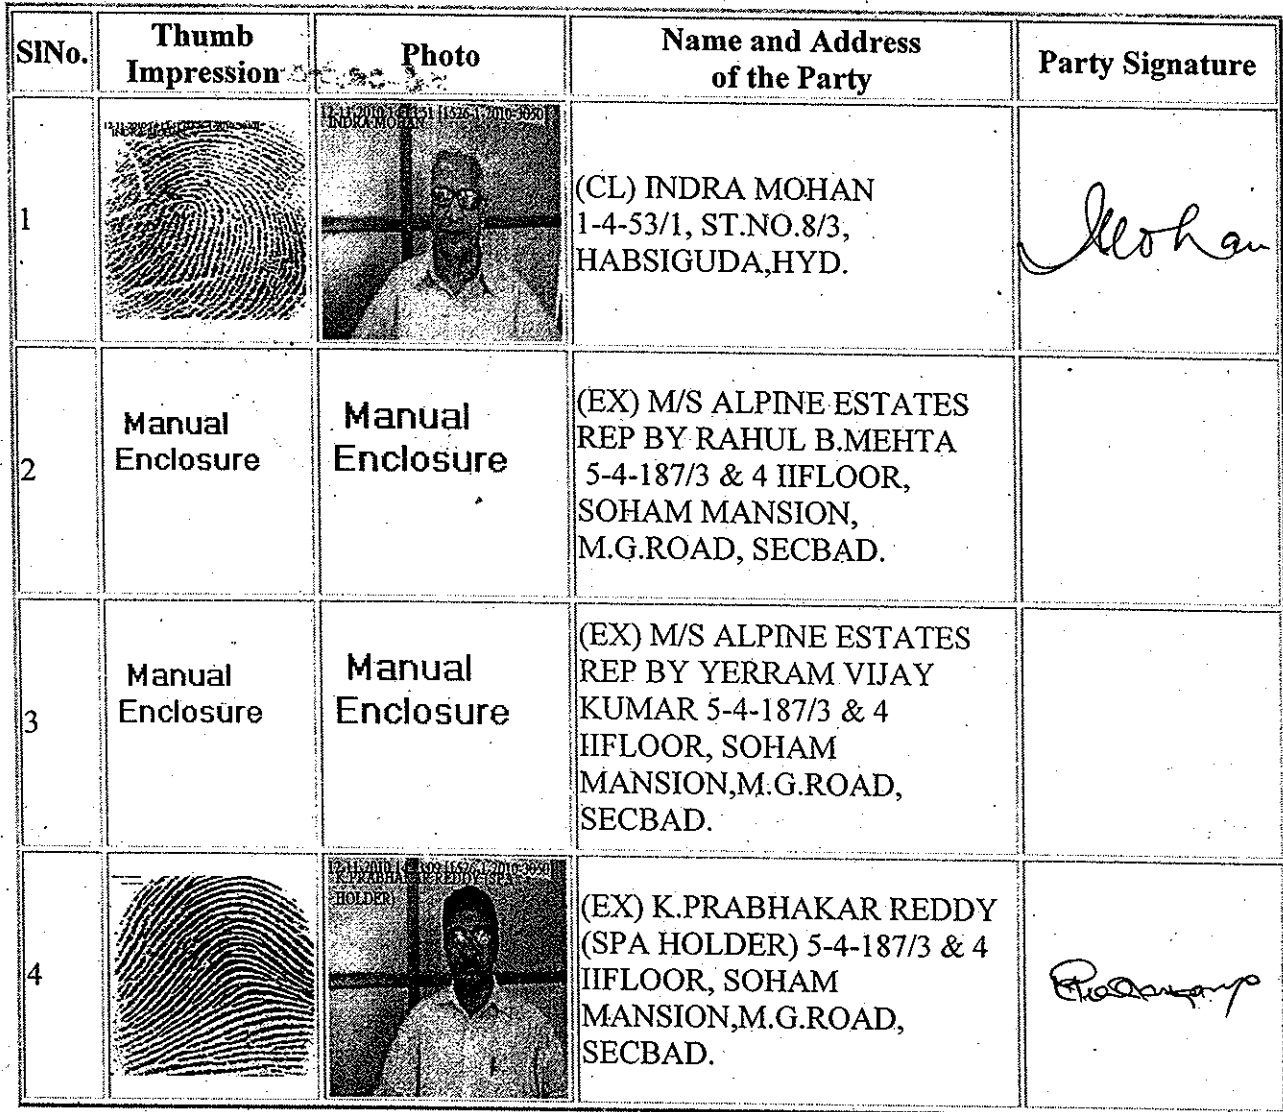 SlNo.
Thumb
Impression
Photo
Name and Address
of the Party
Party Signature
1
INDRA MOHAN
(CL) INDRA MOHAN
1-4-53/1, ST.NO.8/3,
HABSIGUDA,HYD.
Mohan
2
Manual
Enclosure
Manual
Enclosure
(EX) M/S ALPINE ESTATES
REP BY RAHUL B.MEHTA
5-4-187/3 & 4 IIFLOOR,
SOHAM MANSION,
M.G.ROAD, SECBAD.
3
Manual
Enclosure
Manual
Enclosure
(EX) M/S ALPINE ESTATES
REP BY YERRAM VIJAY
KUMAR 5-4-187/3 & 4
IIFLOOR, SOHAM
MANSION,M.G.ROAD,
SECBAD.
4
K.PRABHAKAR REDDY (SPA
HOLDER)
(EX) K.PRABHAKAR REDDY
(SPA HOLDER) 5-4-187/3 & 4
IIFLOOR, SOHAM
MANSION,M.G.ROAD,
SECBAD.